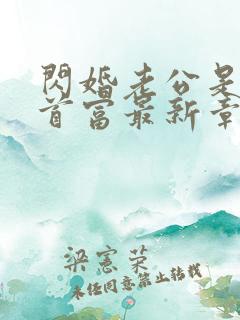 閃婚老公是
首富最新章
梁憲榮
未经同意禁止转载